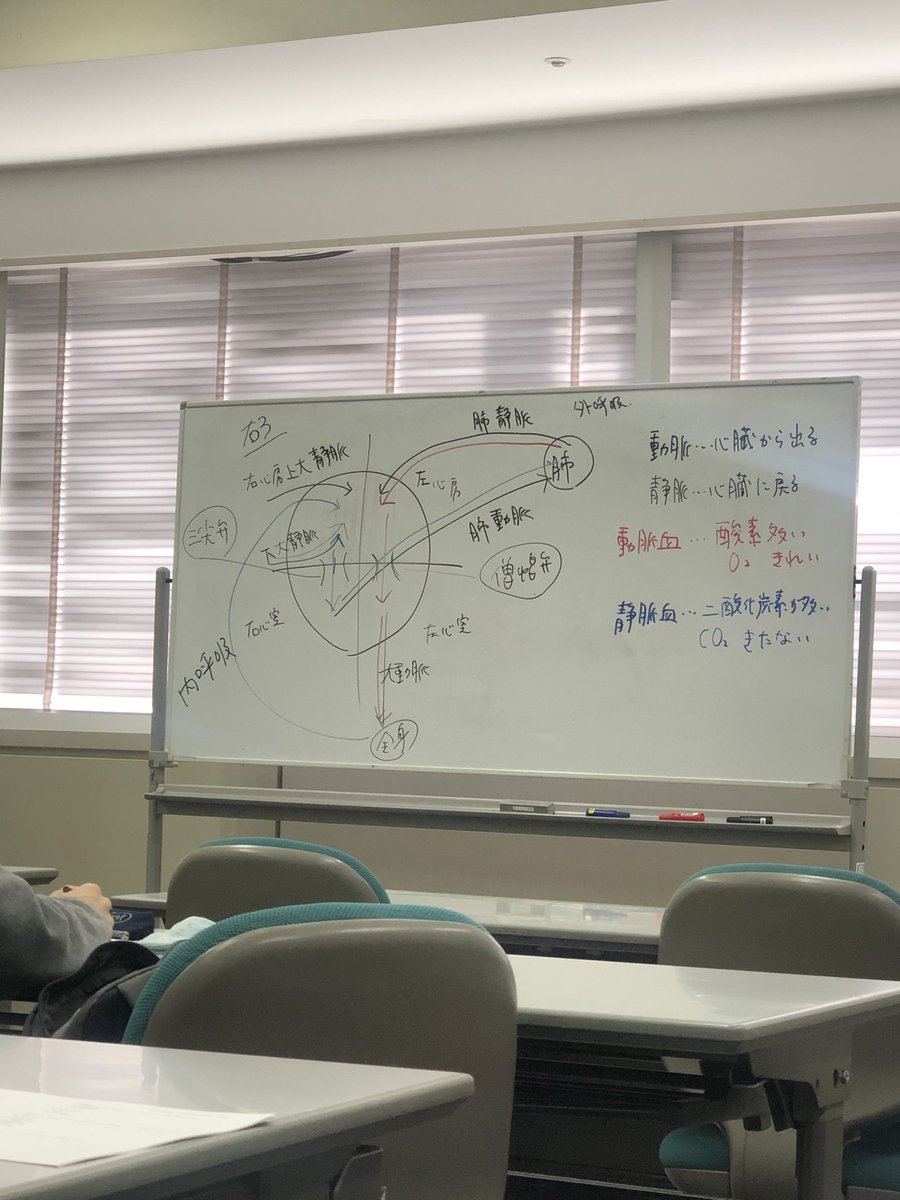 右3
右心房 上大静脈
三尖弁
下大静脈
右心室
内呼吸
肺静脈
外呼吸
左心房
肺
肺動脈
僧帽弁
左心室
大動脈
全身
動脈…心臓から出る
静脈…心臓に戻る
動脈血…酸素多い
O₂ きれい
静脈血…二酸化炭素が多い
CO₂ きたない